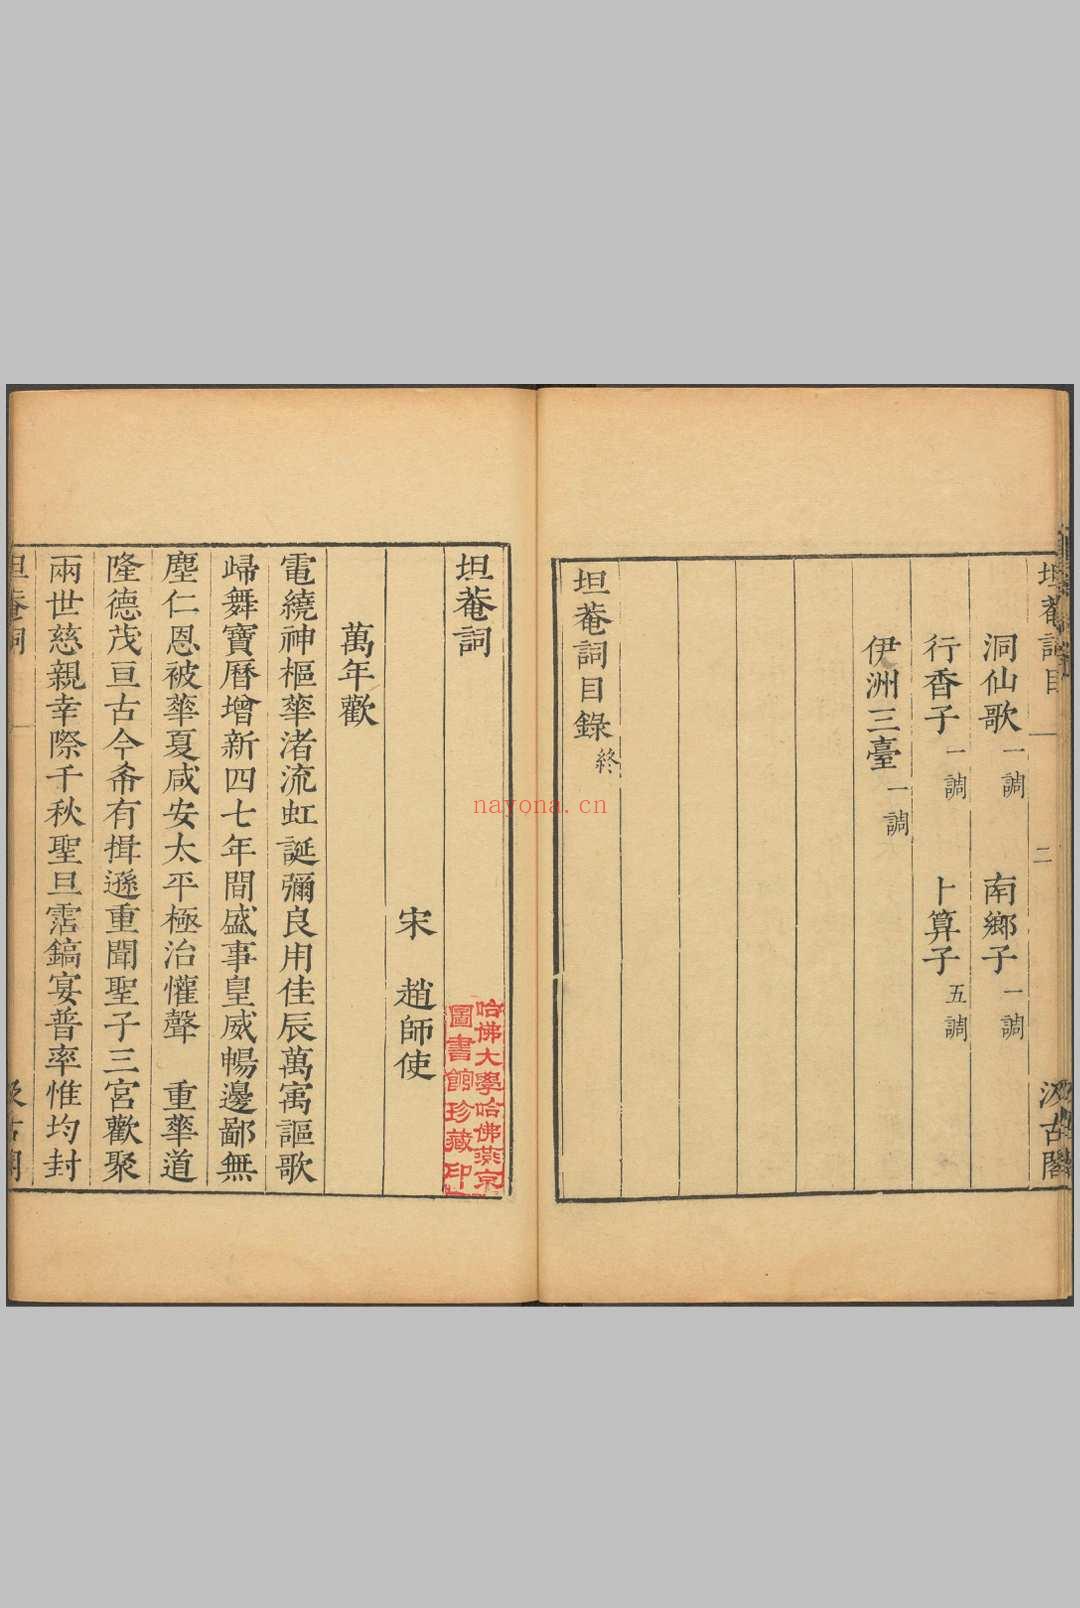 坦菴詞目 二 汲古閣
洞仙歌一調 南鄉子一調
行香子一調 卜算子五調
伊洲三臺一調
坦菴詞目錄終
坦菴詞
宋 趙師使
萬年歡
電繞神樞華渚流虹誕彌良用佳辰萬寓謳歌
歸舞寶曆增新四七年間盛事皇威暢邊鄙無
塵仁恩被華夏咸安太平極治懽聲 重華道
隆德茂亘古今希有揖遜重聞聖子三宮歡聚
兩世慈親幸際千秋聖旦霑鎬宴普率惟均封
坦菴詞 一 汲古閣
哈佛大學哈佛燕京
圖書館珍藏印
nayona.cn